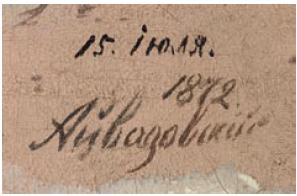 15. Iюля.
1872.
Айвазовскiй